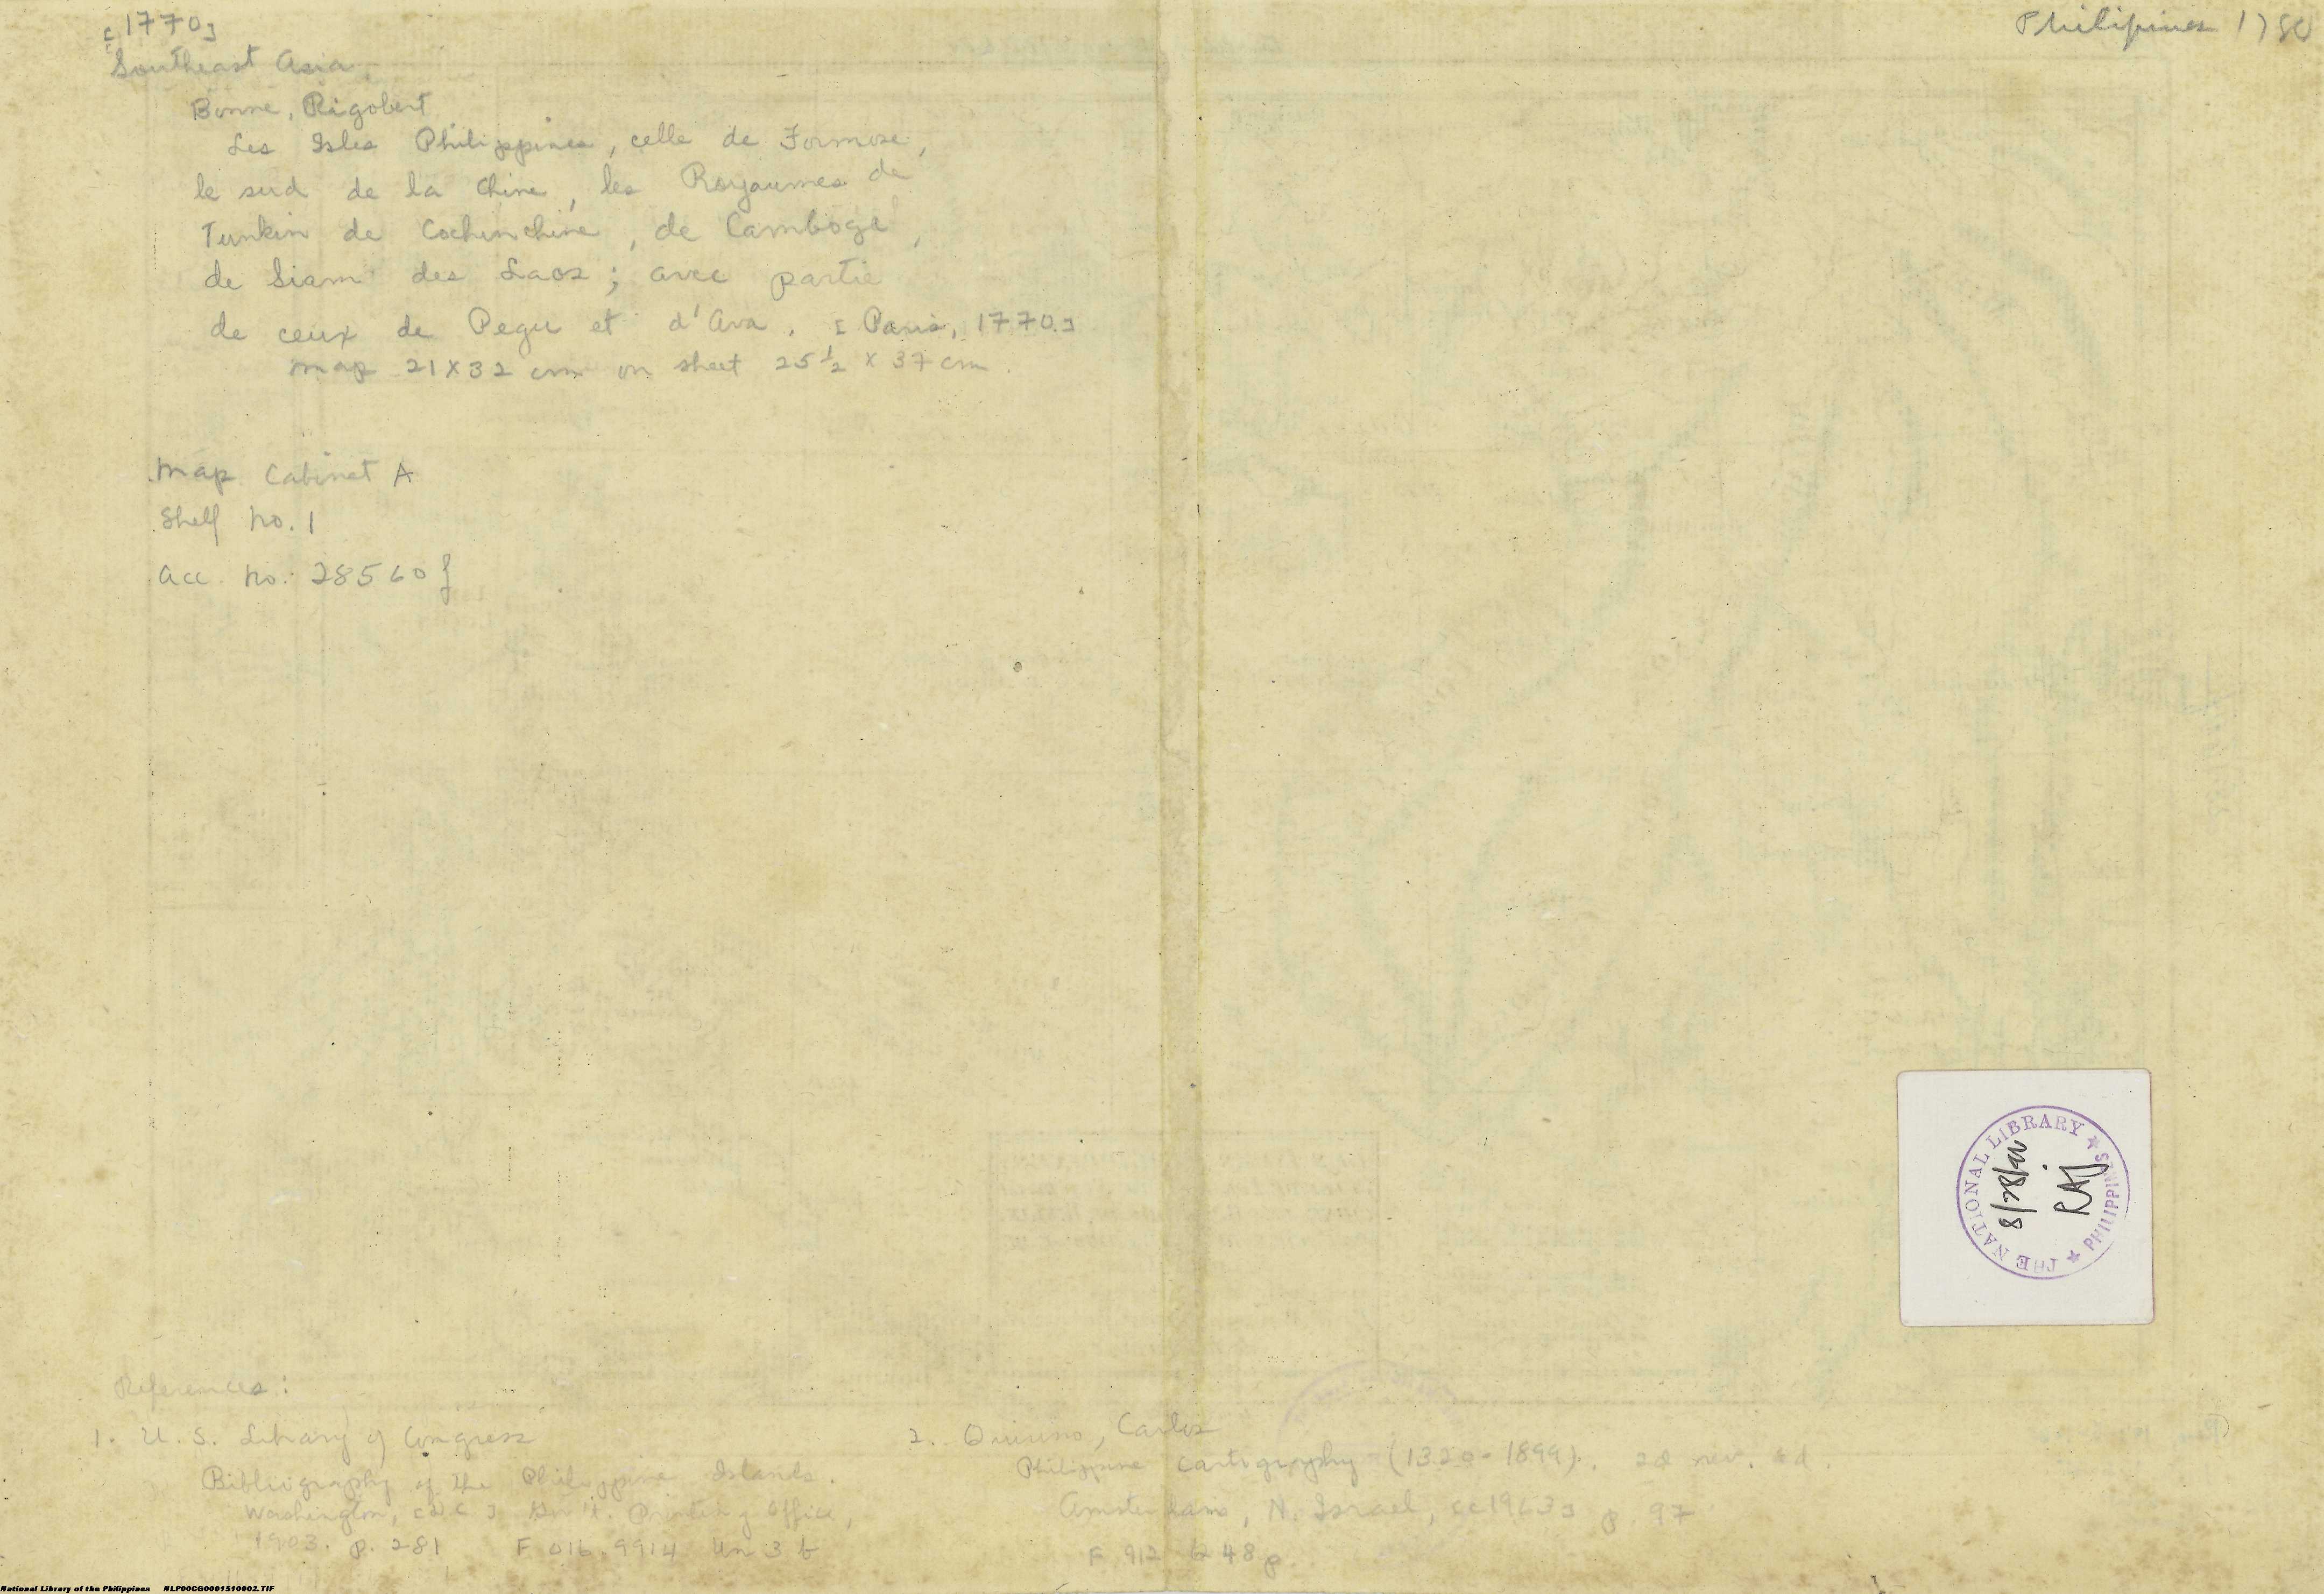 [1770]
Philipines 1780
Southeast Asia
Bonne, Rigobert
Les Isles Philippines, celle de Formose,
le sud de la Chine, les Royaumes de
Tunkin de Cochinchine, de Camboge,
de Siam des Laos; avec partie
de ceux de Pegu et d'Ava. [Paris, 1770.]
map 21 X 32 cm on sheet 25 ½ X 37 cm.
Map Cabinet A
Shelf No. 1
Acc. No. 28560 f
THE NATIONAL LIBRARY ★ PHILIPPINES ★
RAJ
References:
1. U.S. Library of Congress
Bibliography of the Philippine Islands.
Washington, [D.C.] Gov't. Printing Office,
1903. p. 281 F 016.9914 Un 3 b
2. Quirino, Carlos
Philippine Cartography (1320-1899). 2d rev. ed.
Amsterdam, N. Israel, [c1963] p. 97
F 912 Q 48 p
National Library of the Philippines NLP00CG0001510002.TIF